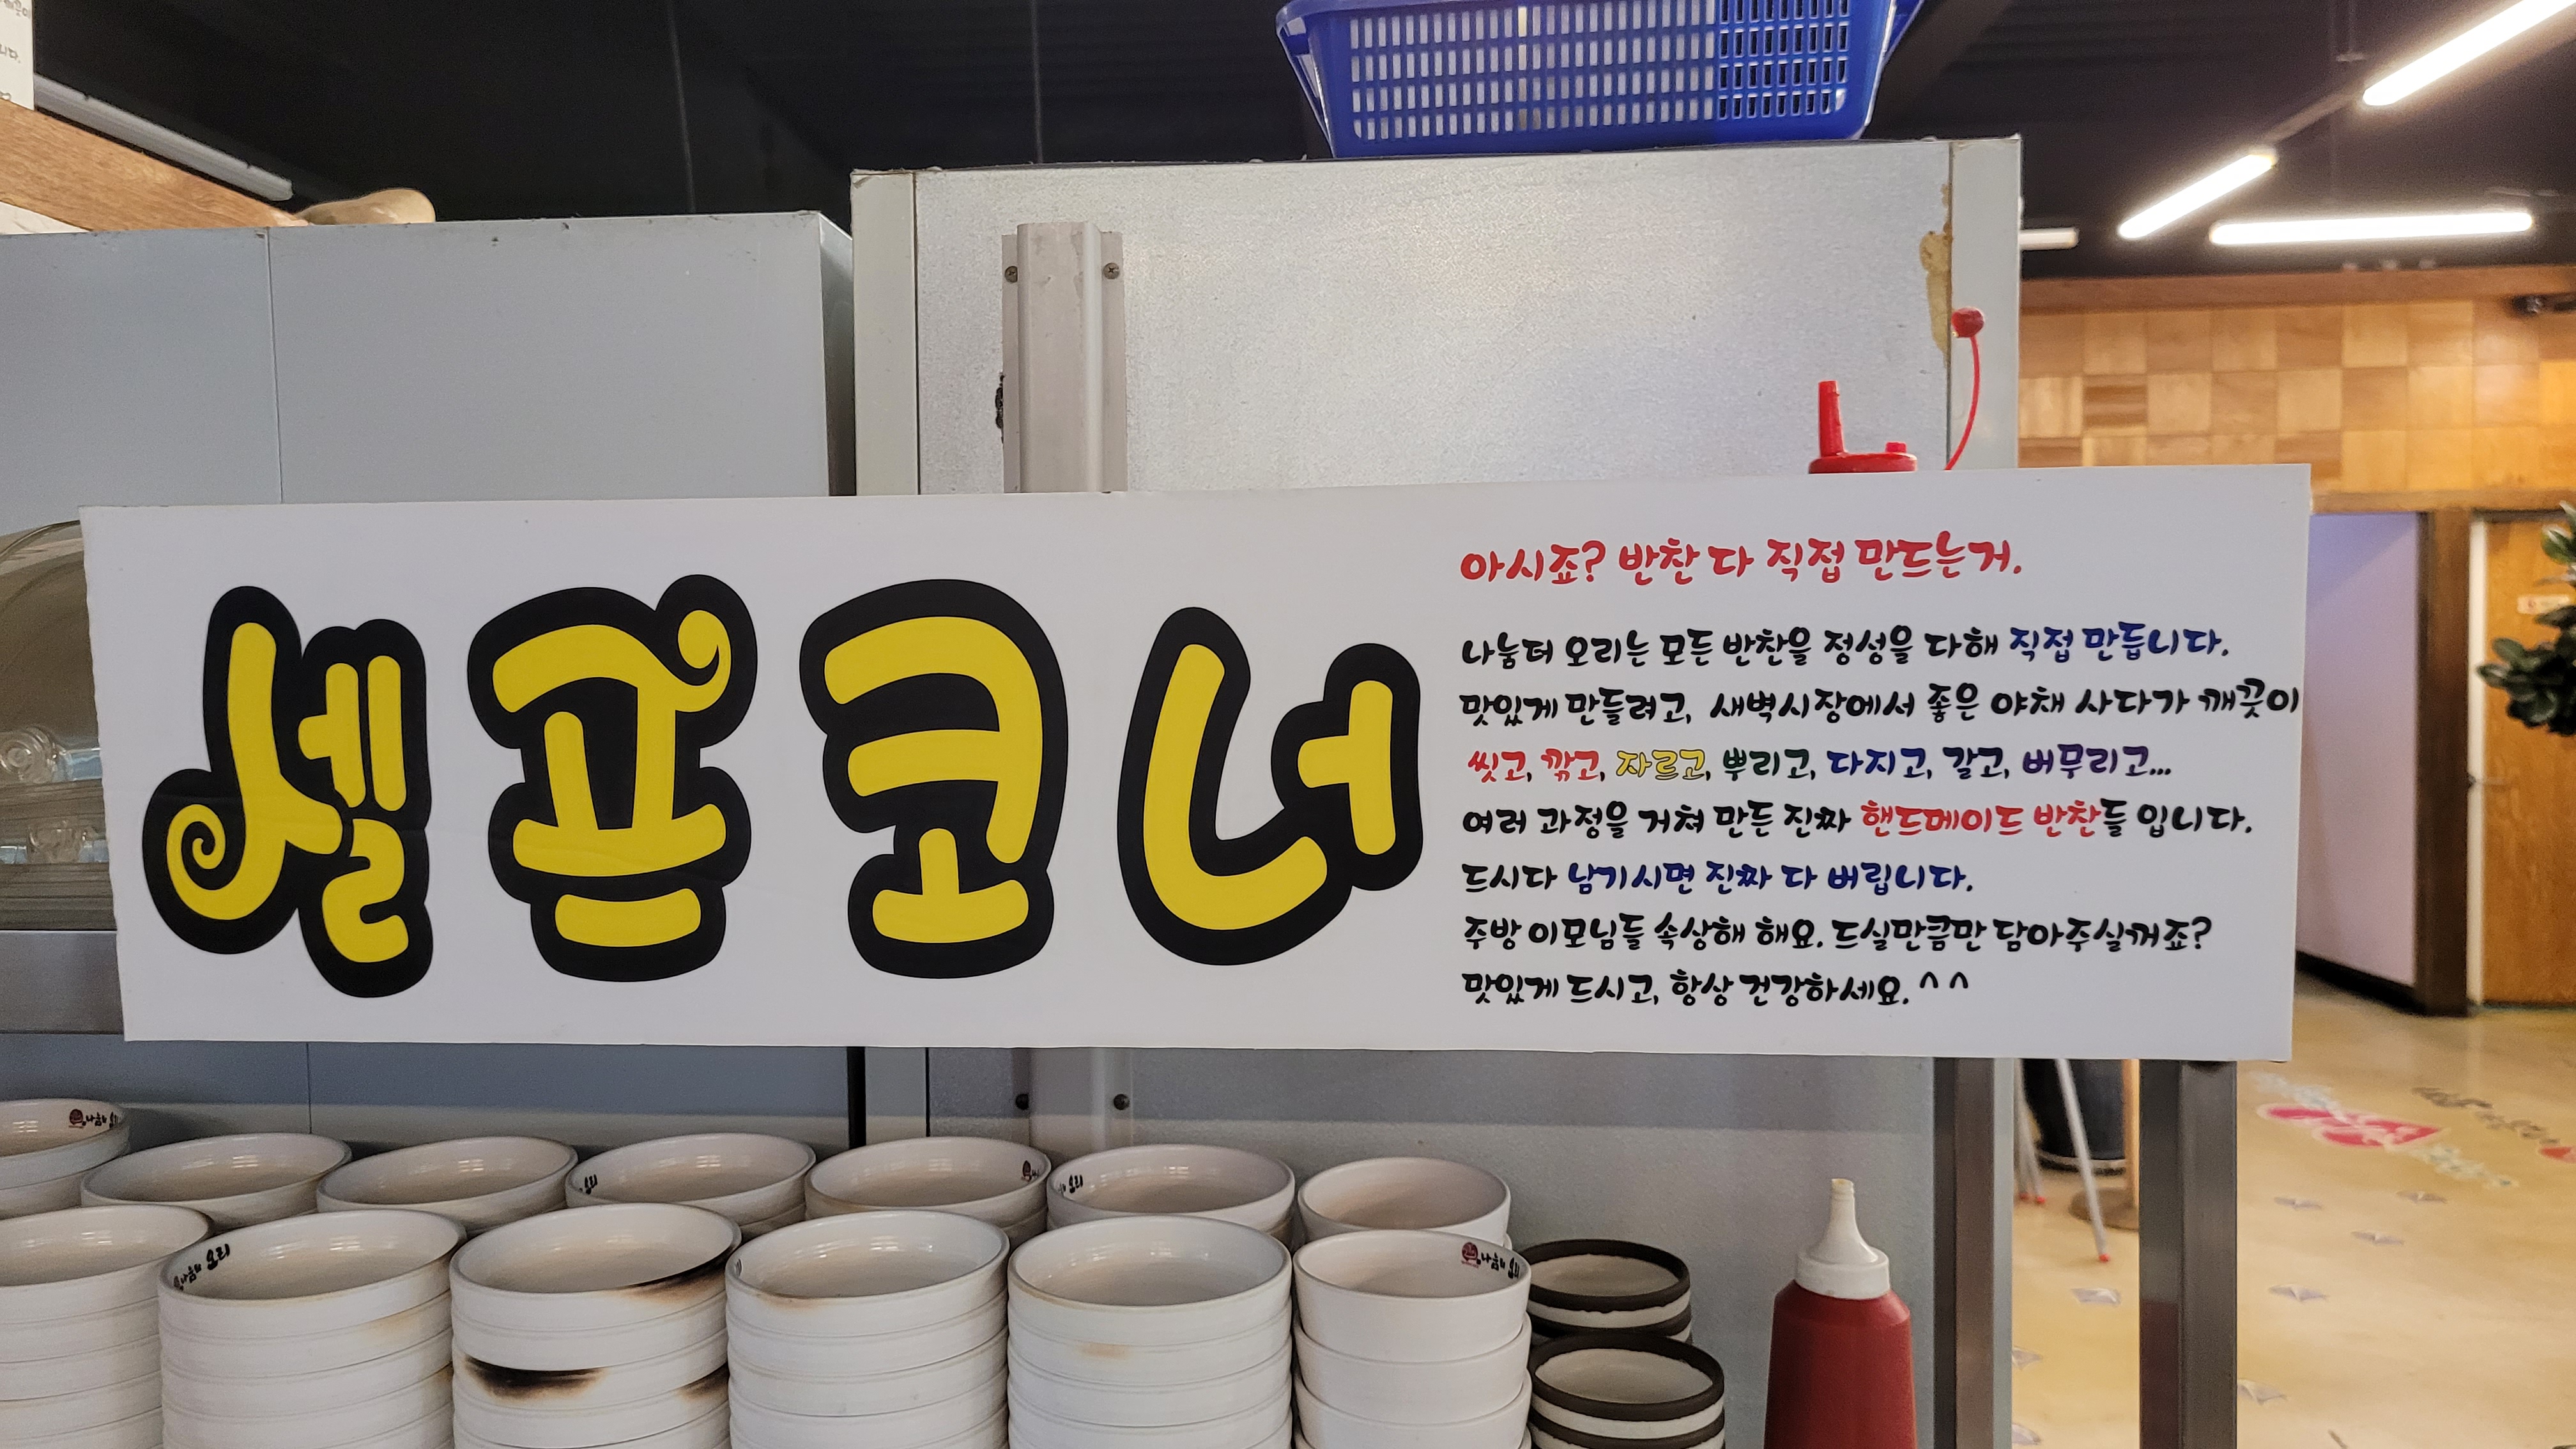 셀프코너
아시죠? 반찬 다 직접 만드는거.
나눔터 오리는 모든 반찬을 정성을 다해 직접 만듭니다.
맛있게 만들려고, 새벽시장에서 좋은 야채 사다가 깨끗이
씻고, 깎고, 자르고, 뿌리고, 다지고, 갈고, 버무리고...
여러 과정을 거쳐 만든 진짜 핸드메이드 반찬들 입니다.
드시다 남기시면 진짜 다 버립니다.
주방 이모님들 속상해 해요. 드실만큼만 담아주실꺼죠?
맛있게 드시고, 항상 건강하세요.^^
나눔터 오리